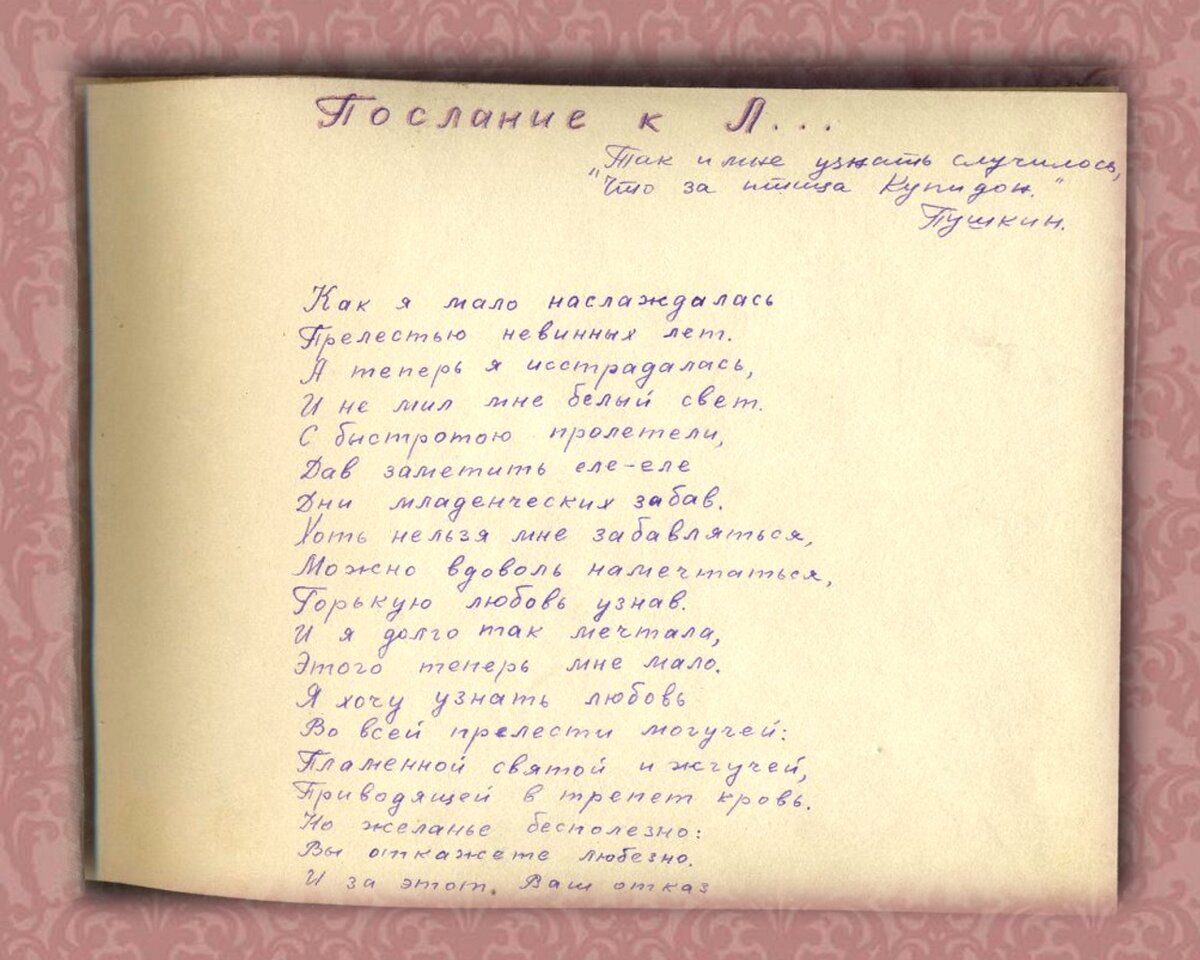 Послание к Л...
"Так и мне узнать случилось,
"Что за птица Купидон."
Пушкин.
Как я мало наслаждалась
Прелестью невинных лет.
А теперь я исстрадалась,
И не мил мне белый свет.
С быстротою пролетели,
Дав заметить еле-еле
Дни младенческих забав.
Хоть нельзя мне забавляться,
Можно вдоволь намечтаться,
Горькую любовь узнав.
И я долго так мечтала,
Этого теперь мне мало.
Я хочу узнать любовь
Во всей прелести могучей:
Пламенной святой и жгучей,
Приводящей в трепет кровь.
Но желанье бесполезно:
Вы откажете любезно.
И за этот Ваш отказ